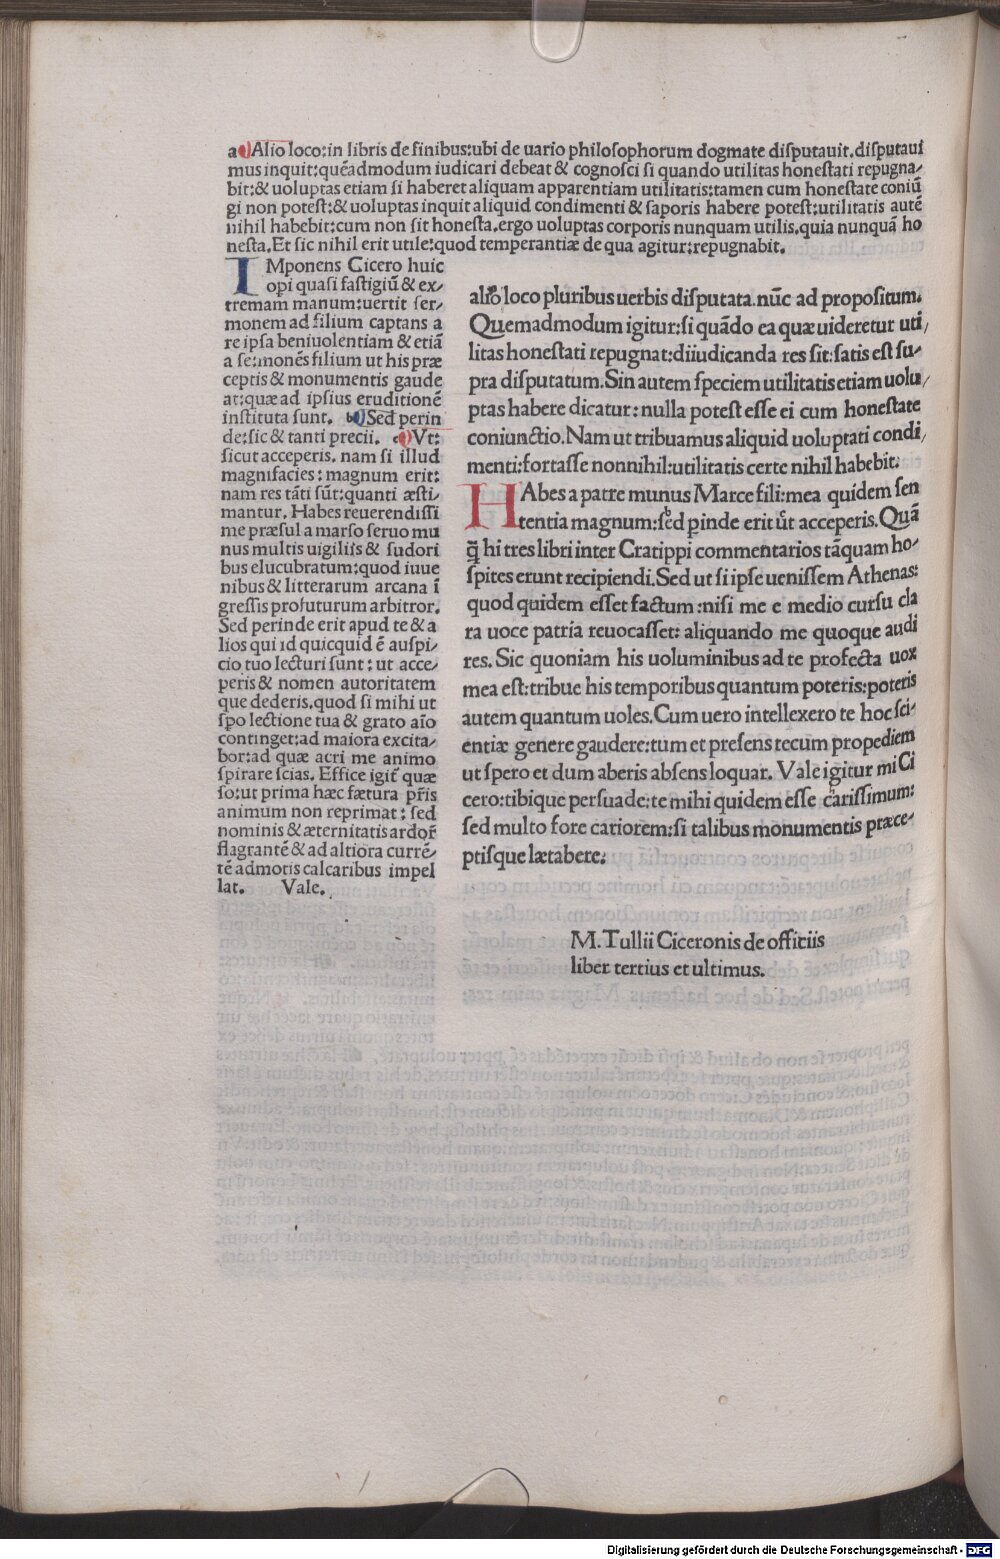 a Alio loco:in libris de finibus:ubi de uario philoſophorum dogmate diſputauit.diſputaui
mus inquit:quēadmodum iudicari debeat & cognoſci ſi quando utilitas honeſtati repugna⸗
bit:& uoluptas etiam ſi haberet aliquam apparentiam utilitatis:tamen cum honeſtate coniū
gi non poteſt:& uoluptas inquit aliquid condimenti & ſaporis habere poteſt:utilitatis autē
nihil habebit:cum non ſit honeſta.ergo uoluptas corporis nunquam utilis.quia nunquā ho
neſta.Et ſic nihil erit utile:quod temperantiæ de qua agitur:repugnabit.
IMponens Cicero huic
opi quaſi faſtigiū & ex⸗
tremam manum:uertit ſer⸗
monem ad filium captans a
re ipſa beniuolentiam & etiā
a ſermonēs filium ut his præ
ceptis & monumentis gaude
at:quæ ad ipſius eruditionē
inſtituta ſunt. b Sed perin
de:ſic & tanti precii. c Vt:
ſicut acceperis. nam ſi illud
magnifacies: magnum erit:
nam res tāti ſūt:quanti æſti⸗
mantur. Habes reuerendiſſi
me præſul a marſo ſeruo mu
nus multis uigiliis & ſudori
bus elucubratum:quod iuue
nibus & litterarum arcana ī
greſſis profuturum arbitror.
Sed perinde erit apud te & a
lios qui id quicquid ē auſpi⸗
cio tuo lecturi ſunt: ut acce⸗
peris & nomen autoritatem
que dederis.quod ſi mihi ut
ſpo lectione tua & grato aīo
continget:ad maiora excita⸗
bor:ad quæ acri me animo
ſpirare ſcias. Effice igit̄ quæ
ſo:ut prima hæc fætura p̄ris
animum non reprimat: ſed
nominis & æternitatis ardor̄
flagrantē & ad altiora currē⸗
tē admotis calcaribus impel
lat. Vale.
alio loco pluribus uerbis diſputata.nūc ad propoſitum.
Quemadmodum igitur:ſi quādo ea quæ uideretur uti⸗
litas honeſtati repugnat:diiudicanda res ſit:ſatis eſt ſu⸗
pra diſputatum.Sin autem ſpeciem utilitatis etiam uolu⸗
ptas habere dicatur: nulla poteſt eſſe ei cum honeſtate
coniunctio.Nam ut tribuamus aliquid uoluptati condi⸗
menti:fortaſſe nonnihil:utilitatis certe nihil habebit.
HAbes a patre munus Marce fili:mea quidem ſen
tentia magnum:ſed pinde erit ut acceperis.Quā
q̄ hi tres libri inter Cratippi commentarios tāquam ho⸗
ſpites erunt recipiendi.Sed ut ſi ipſe ueniſſem Athenas:
quod quidem eſſet factum :niſi me e medio curſu cla
ra uoce patria reuocaſſet: aliquando me quoque audi
res. Sic quoniam his uoluminibus ad te profecta uox
mea eſt:tribue his temporibus quantum poteris:poteris
autem quantum uoles.Cum uero intellexero te hoc ſci⸗
entiæ genere gaudere:tum et preſens tecum propediem
ut ſpero et dum aberis abſens loquar. Vale igitur mi Ci
cero:tibique perſuade:te mihi quidem eſſe cariſſimum:
ſed multo fore cariorem:ſi talibus monumentis præce⸗
ptiſque lætabere.
M.Tullii Ciceronis de officiis
liber tertius et ultimus.
Digitalisierung gefördert durch die Deutsche Forschungsgemeinschaft - DFG